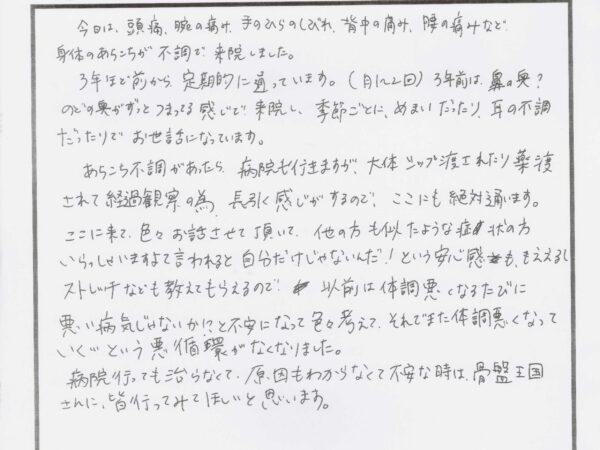 今日は、頭痛、腕の痛み、手のひらのしびれ、背中の痛み、腰の痛みなど
身体のあちこちが不調で来院しました。
3年ほど前から定期的に通っています。(月1〜2回) 3年前は、鼻の奥?
のどの奥がずっとつまってる感じで来院し、季節ごとに、めまいだったり、耳の不調
だったりでお世話になっています。
あちこち不調があったら、病院も行きますが、大体シップ渡されたり薬渡
されて経過観察の為、長引く感じがするので、ここにも絶対通います。
ここに来て、色々お話させて頂いて、他の方も似たような症状の方
いらっしゃいますよて言われると自分だけじゃないんだ!という安心感も、もらえるし
ストレッチなども教えてもらえるので、以前は体調悪くなるたびに
悪い病気じゃないか!?と不安になって色々考えて、それでまた体調悪くなって
いく…という悪循環がなくなりました。
病院行っても治らなくて、原因もわからなくて不安な時は、骨盤王国
さんに、皆行ってみてほしいと思います。